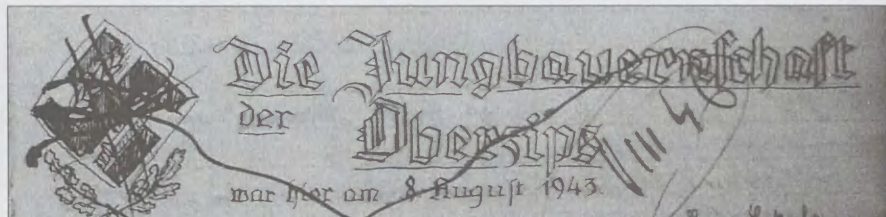 Die Jungbauernschaft
der
Oberzips
war hier am 8. August 1943.